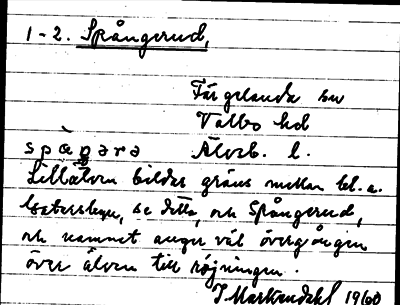 1-2. Spångerud,
Färgelanda sn
Valbo hd
spåŋərə Älvsb. l.
Lillälven bildar gräns mellan bl.a.
se detta, och Spångerud,
och namnet anger väl övergången
över älven till röjningen.
1960